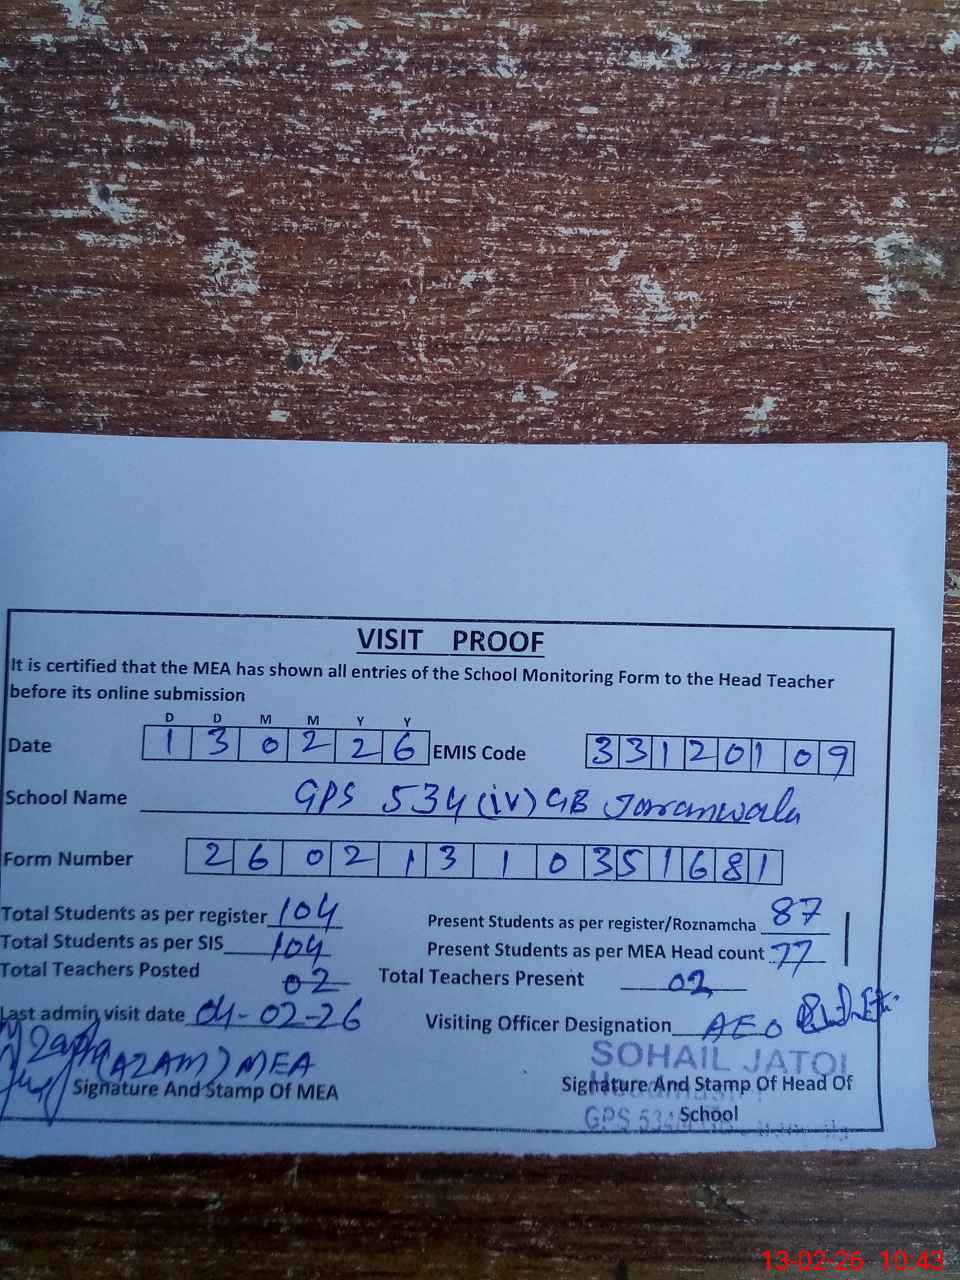 VISIT PROOF
It is certified that the MEA has shown all entries of the School Monitoring Form to the Head Teacher
before its online submission
D D M M Y Y
Date 1 3 0 2 2 6 EMIS Code 3 3 1 2 0 1 0 9
School Name GPS 534 (iv) GB Jaranwala
Form Number 2 6 0 2 1 3 1 0 3 5 1 6 8 1
Total Students as per register 104 Present Students as per register/Roznamcha 87
Total Students as per SIS 104 Present Students as per MEA Head count 77
Total Teachers Posted 02 Total Teachers Present 02
Last admin visit date 04-02-26 Visiting Officer Designation AEO
(AZAM) MEA SOHAIL JATOI
Signature And Stamp Of MEA Signature And Stamp Of Head Of
School
GPS 534
13-02-26 10:43